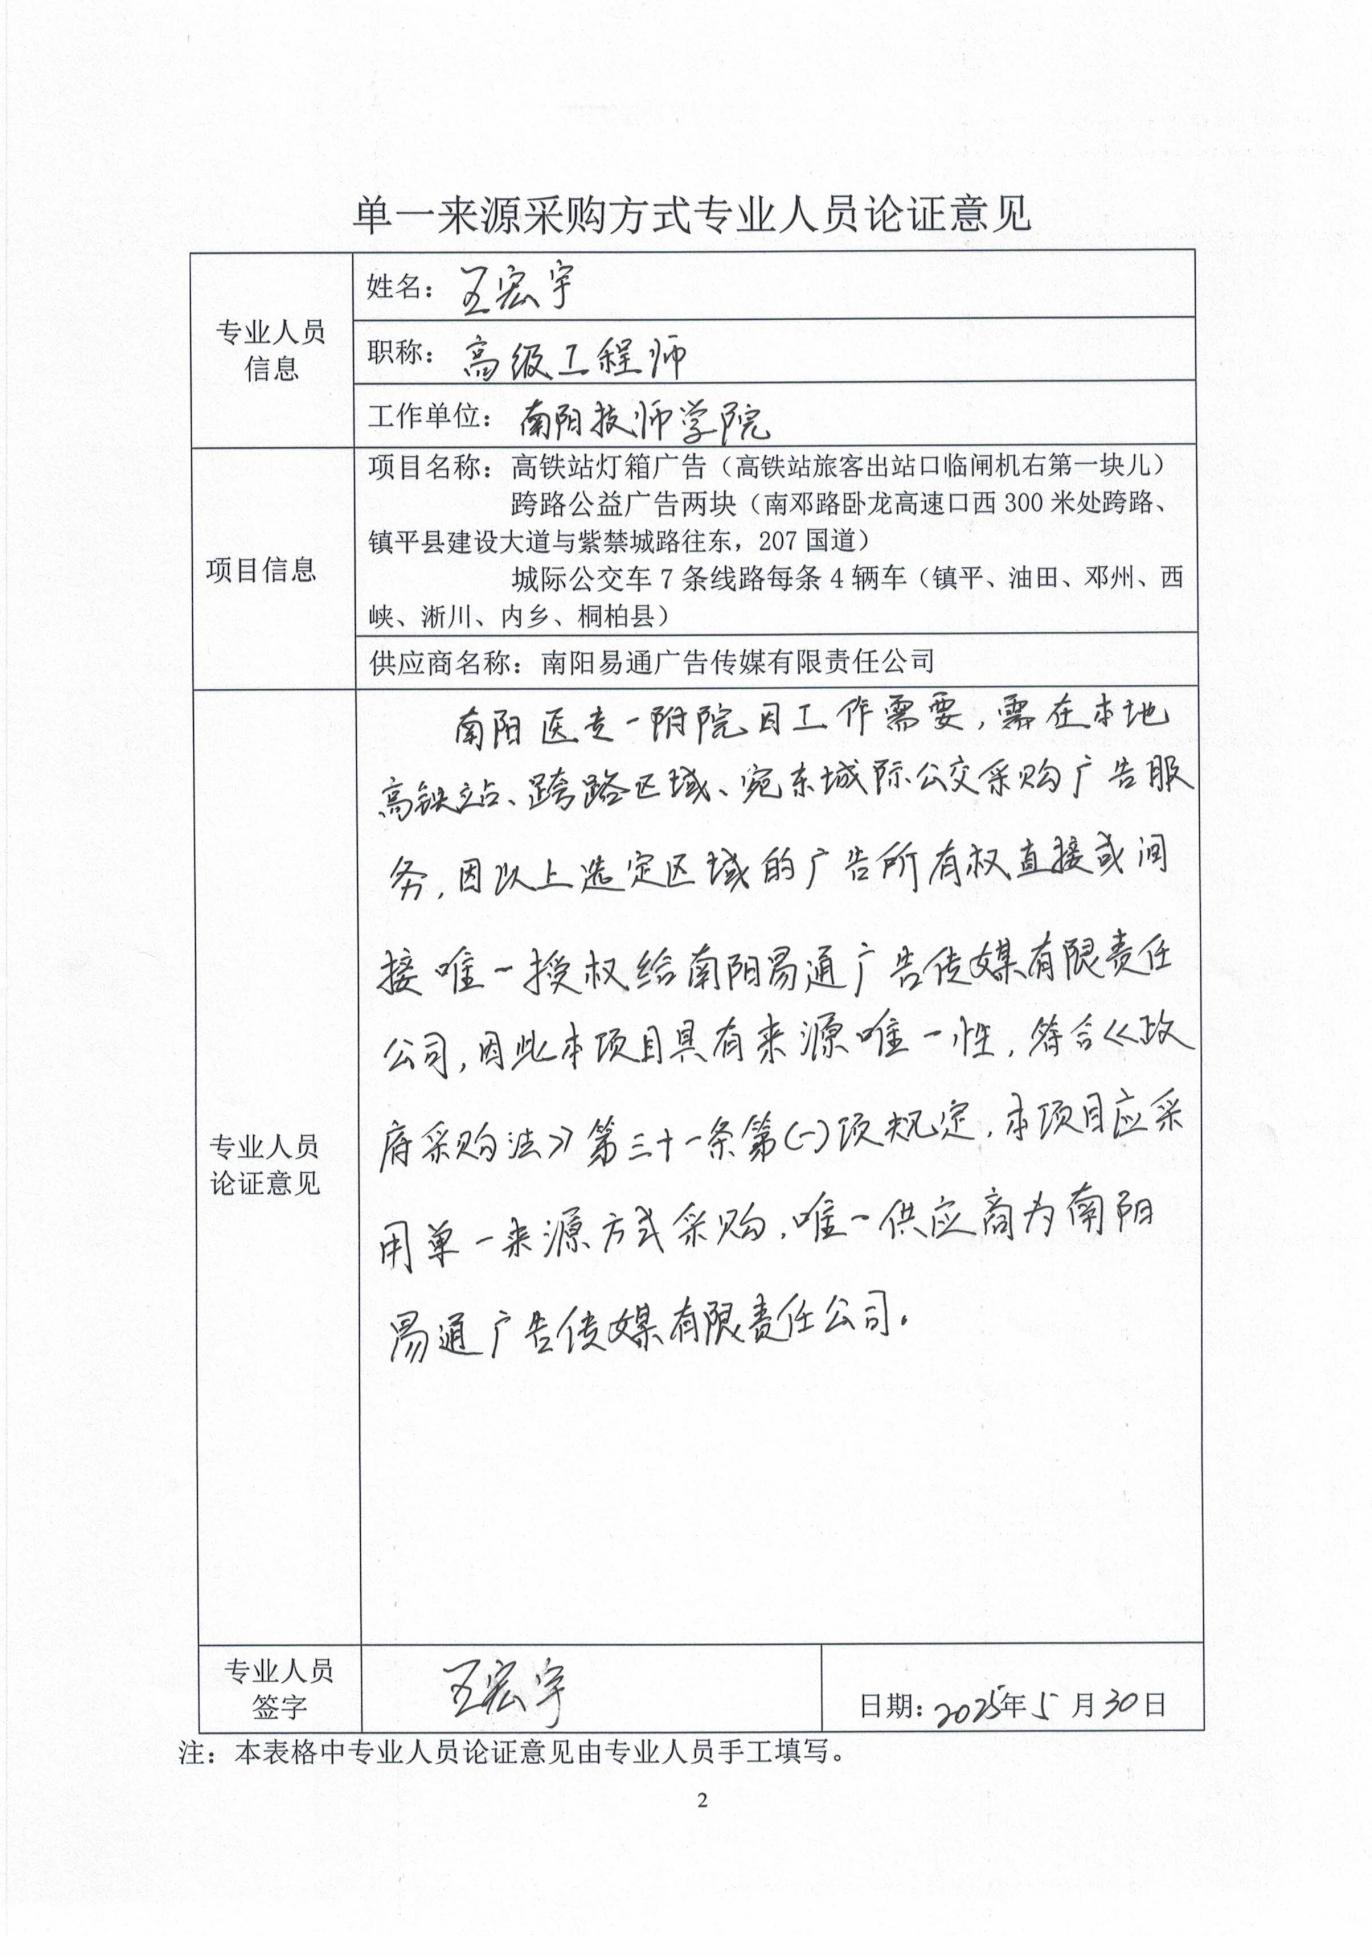 单一来源采购方式专业人员论证意见
专业人员
信息
姓名：王宏宇
职称：高级工程师
工作单位：南阳技师学院
项目信息
项目名称：高铁站灯箱广告（高铁站旅客出站口临闸机右第一块儿）
跨路公益广告两块（南邓路卧龙高速口西 300 米处跨路、
镇平县建设大道与紫禁城路往东，207 国道）
城际公交车 7 条线路每条 4 辆车（镇平、油田、邓州、西
峡、淅川、内乡、桐柏县）
供应商名称：南阳易通广告传媒有限责任公司
专业人员
论证意见
南阳医专一附院因工作需要，需在本地
高铁站、跨路区域、宛东城际公交采购广告服
务，因以上选定区域的广告所有权直接或间
接唯一授权给南阳易通广告传媒有限责任
公司，因此本项目具有来源唯一性，符合《政
府采购法》第三十一条第(一)项规定，本项目应采
用单一来源方式采购，唯一供应商为南阳
易通广告传媒有限责任公司。
专业人员
签字
王宏宇
日期：2025年5月30日
注：本表格中专业人员论证意见由专业人员手工填写。
2